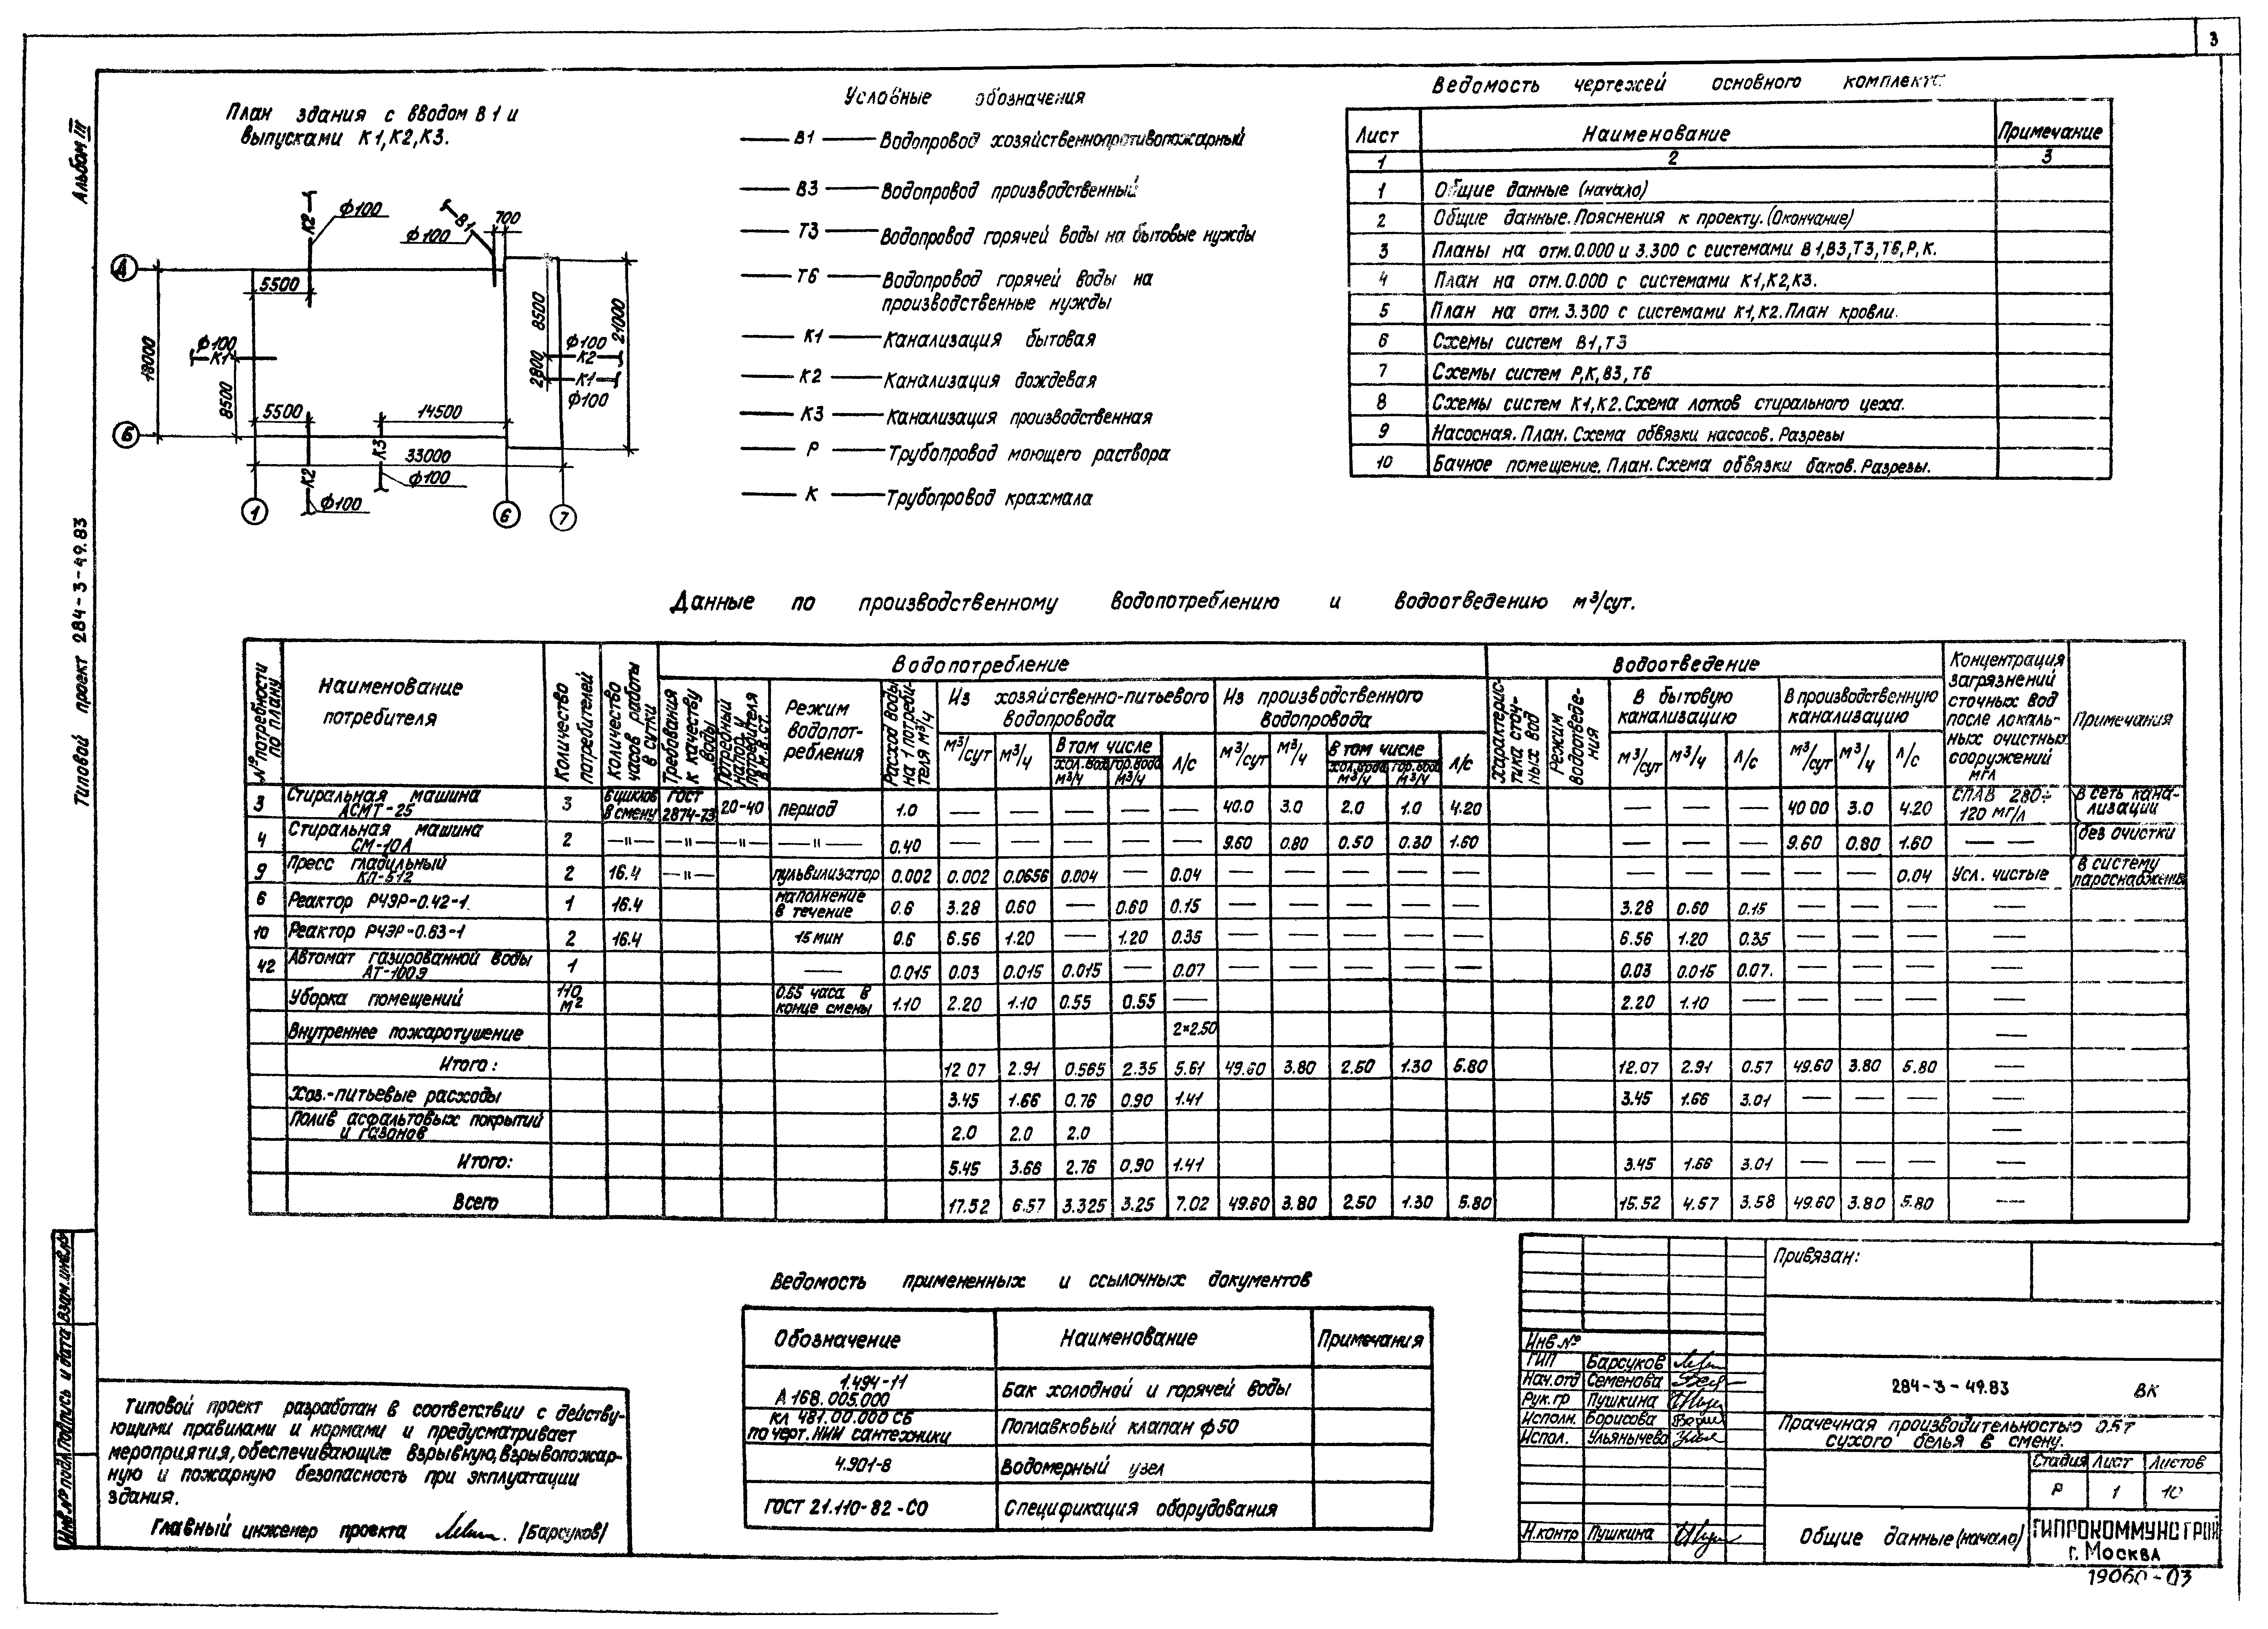 3
Альбом III
Типовой проект 284-3-49.83
План здания с вводом В1 и
выпусками К1, К2, К3.
К2
ф100
В1
ф100
700
А
5500
18000
ф100
К1
8500
8500
21000
ф100
К2
2800
К1
ф100
5500
14500
Б
К3
33000
К2
ф100
ф100
1
6
7
Условные обозначения
В1 Водопровод хозяйственнопротивопожарный
В3 Водопровод производственный
Т3 Водопровод горячей воды на бытовые нужды
Т6 Водопровод горячей воды на
производственные нужды
К1 Канализация бытовая
К2 Канализация дождевая
К3 Канализация производственная
Р Трубопровод моющего раствора
К Трубопровод крахмала
Ведомость чертежей основного комплекта
Лист Наименование Примечание
1 2 3
1 Общие данные (начало)
2 Общие данные. Пояснения к проекту. (Окончание)
3 Планы на отм. 0.000 и 3.300 с системами В1, В3, Т3, Т6, Р, К.
4 План на отм. 0.000 с системами К1, К2, К3.
5 План на отм. 3.300 с системами К1, К2. План кровли.
6 Схемы систем В1, Т3
7 Схемы систем Р, К, В3, Т6
8 Схемы систем К1, К2. Схема лотков стирального цеха.
9 Насосная. План. Схема обвязки насосов. Разрезы
10 Бачное помещение. План. Схема обвязки баков. Разрезы.
Данные по производственному водопотреблению и водоотведению м³/сут.
№ потребности по плану
Наименование потребителя
Количество потребителей
Количество часов работы в сутки
Водопотребление
Требования к качеству воды
Потребный напор у потребителя в м.в.ст.
Режим водопотребления
Расход воды на 1 потребителя м³/ч
Из хозяйственно-питьевого водопровода
м³/сут м³/ч В том числе хол. вода м³/ч гор. вода м³/ч л/с
Из производственного водопровода
м³/сут м³/ч В том числе хол. вода м³/ч гор. вода м³/ч л/с
Водоотведение
Характеристика сточных вод
Режим водоотведения
В бытовую канализацию
м³/сут м³/ч л/с
В производственную канализацию
м³/сут м³/ч л/с
Концентрация загрязнений сточных вод после локальных очистных сооружений мгл
Примечания
3 Стиральная машина АСМТ-25 3 6 циклов в смену ГОСТ 2874-73 20-40 период 1.0 — — — — — 40.0 3.0 2.0 1.0 4.20 — — — 40 00 3.0 4.20 СПАВ 280÷120 мг/л в сеть канализации
4 Стиральная машина СМ-10А 2 —"— —"— —"— —"— 0.40 9.60 0.80 0.50 0.30 1.60 — — — 9.60 0.80 1.60 — — без очистки
9 Пресс гладильный КП-512 2 16.4 —"— пульвилизатор 0.002 0.002 0.0656 0.004 — 0.04 — — — — — — — — — — 0.04 Усл. чистые в систему пароснабжения
6 Реактор РЧЭР-0.42-1. 1 16.4 наполнение в течение 0.6 3.28 0.60 — 0.60 0.15 — — — — — 3.28 0.60 0.15 — — — —
10 Реактор РЧЭР-0.63-1 2 16.4 15 мин 0.6 6.56 1.20 — 1.20 0.35 — — — — — 6.56 1.20 0.35 — — — —
42 Автомат газированной воды АТ-100Э 1 — 0.015 0.03 0.015 0.015 — 0.07 — — — — — 0.03 0.015 0.07. — — — —
Уборка помещений 110 м² 0.55 часа в конце смены 1.10 2.20 1.10 0.55 0.55 — 2.20 1.10 — — — — —
Внутреннее пожаротушение 2×2.50 —
Итого: 12 07 2.91 0.565 2.35 5.61 49.60 3.80 2.50 1.30 5.80 12.07 2.91 0.57 49.60 3.80 5.80 —
Хоз.-питьевые расходы 3.45 1.66 0.76 0.90 1.41 3.45 1.66 3.01 — — — —
Полив асфальтовых покрытий и газонов 2.0 2.0 2.0 —
Итого: 5.45 3.66 2.76 0.90 1.41 3.45 1.66 3.01 — — — —
Всего 17.52 6.57 3.325 3.25 7.02 49.60 3.80 2.50 1.30 5.80 15.52 4.57 3.58 49.60 3.80 5.80 —
Ведомость примененных и ссылочных документов
Обозначение Наименование Примечания
1.494-11
А 168.005.000 Бак холодной и горячей воды
КЛ 481.00.000 СБ
по черт. НИИ сантехники Поплавковый клапан ф50
4.901-8 Водомерный узел
ГОСТ 21.110-82-СО Спецификация оборудования
Инв. № подл. Подпись и дата Взам. инв. №
Типовой проект разработан в соответствии с действу-
ющими правилами и нормами и предусматривает
мероприятия, обеспечивающие взрывную, взрывопожар-
ную и пожарную безопасность при эксплуатации
здания.
Главный инженер проекта /Барсуков/
Привязан:
Инв. №
ГИП Барсуков
Нач.отд Семенова
Рук.гр Пушкина
Исполн. Борисова
Испол. Ульянычева
Н.контр Пушкина
284-3-49.83 ВК
Прачечная производительностью 0.5т
сухого белья в смену.
Стадия Лист Листов
Р 1 10
Общие данные (начало)
ГИПРОКОММУНСТРОЙ
г. Москва
19060-03